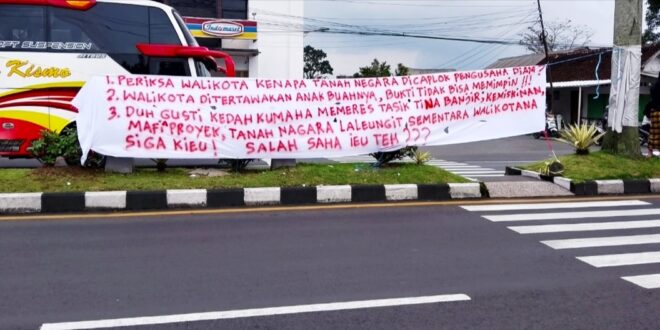 OPT SUSPENSION
Indomaret
Kismo
1. PERIKSA WALIKOTA KENAPA TANAH NEGARA DICAPLOK PENGUSAHA DIAM?
2. WALIKOTA DITERTAWAKAN ANAK BUAHNYA, BUKTI TIDAK BISA MEMIMPIN!!!
3. DUH GUSTI KEDAH KUMAHA MEMERES TASIK TINA BANJIR, KEMISKINAN,
MAFI PROYEK, TANAH NAGARA LALEUNGIT, SEMENTARA WALIKOTANA
SIGA KIEU! SALAH SAHA IEU TEH???